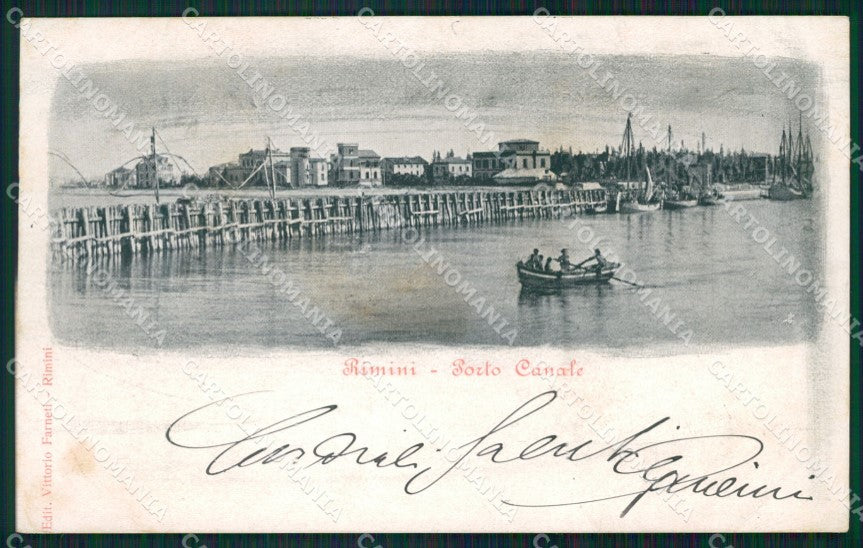 Rimini - Porto Canale
Edit. Vittorio Farneti - Rimini
Cordiali Saluti
CARTOLINOMANIA